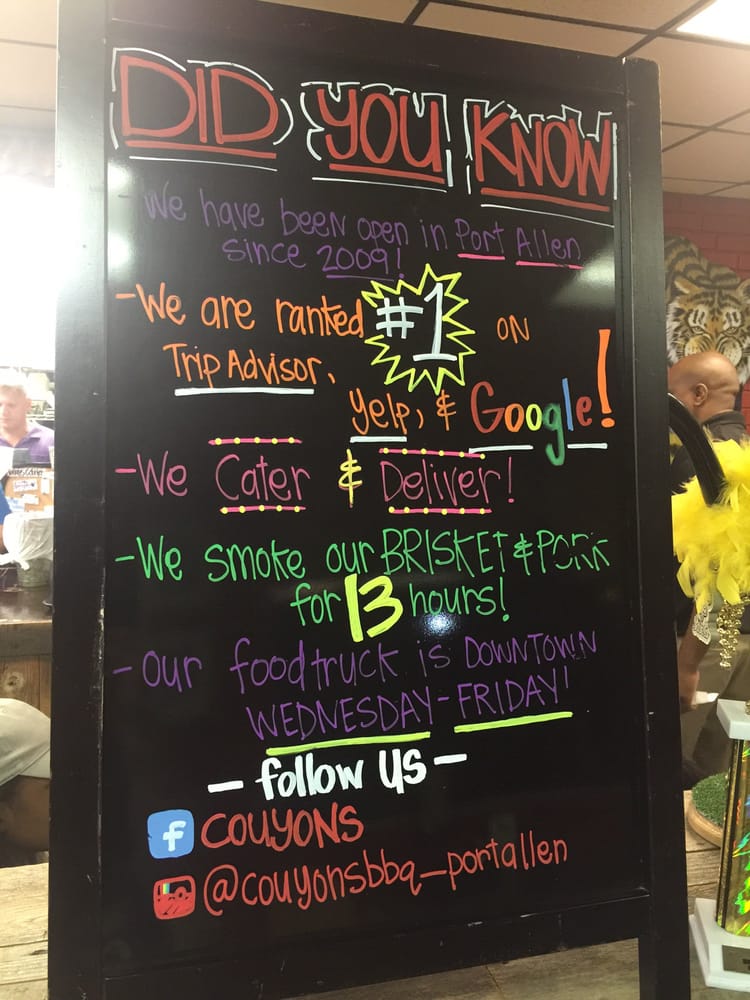 DID YOU KNOW
We have been open in Port Allen
since 2009!
-We are ranked #1 ON
Trip Advisor,
yelp, & Google!
-We Cater & Deliver!
-We smoke our BRISKET & PORK
for 13 hours!
- Our foodtruck is DOWNTOWN
WEDNESDAY - FRIDAY!
- follow us -
f COUYONS
@couyonsbbq_portallen